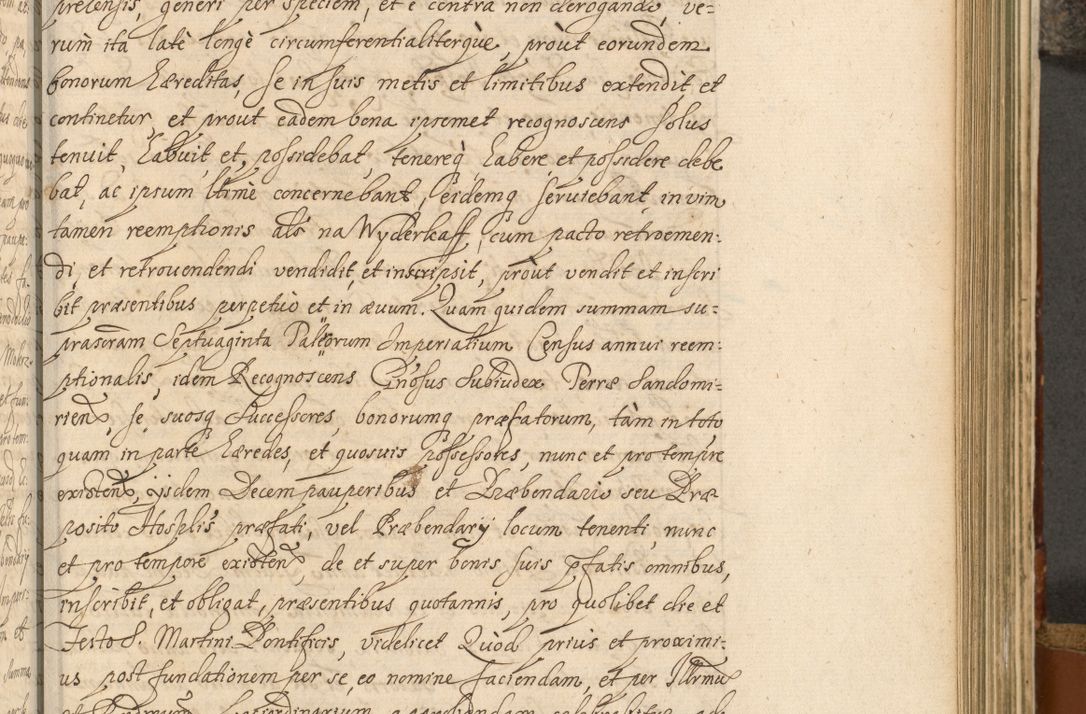 pretensis, generi per speciem, et e contra non derogando, ve=
rum ita latè longè circumferentialiterque, prout eorundem
bonorum hæreditas, se in suis metis et limitibus extendit et
continetur et prout eadem bona ipsemet recognoscens solus
tenuit, habuit et possidebat, tenereq habere et possidere debe
bat, ac ipsum ltimè concernebant, eidemq seruiebant, in vim
tamen reemptionis als na Wyderkaff, cum pacto retroemen:
di, et retrouendendi vendidit, et inscripsit, prout vendit et inscri
bit præsentibus perpetuò et in æuum. Quam quidem summam su:
prascram Septuaginta Paleorum Imperialium Census annui reem:
ptionalis, idem Recognoscens Gnosus Subiudex Terræ Sandomi=
rien, se, suosq Successores, bonorumq præfatorum, tàm in toto
quam in parte hæredes, et quosuis possessores, nunc et pro tempre
existen, ijsdem Decem pauperibus et Præbendario seu Præ
posito Hosplis præfati, vel Præbendarij locum tenenti, nunc
et pro tempore existen, de et super bonis suis pfatis omnibus,
inscribit, et obligat, præsentibus quotannis, pro quolibet die et
Festo S. Martini Pontificis, videlicet Quòd prius et proximi=
us post fundationem per se, eo nomine faciendam, et per Illrmu